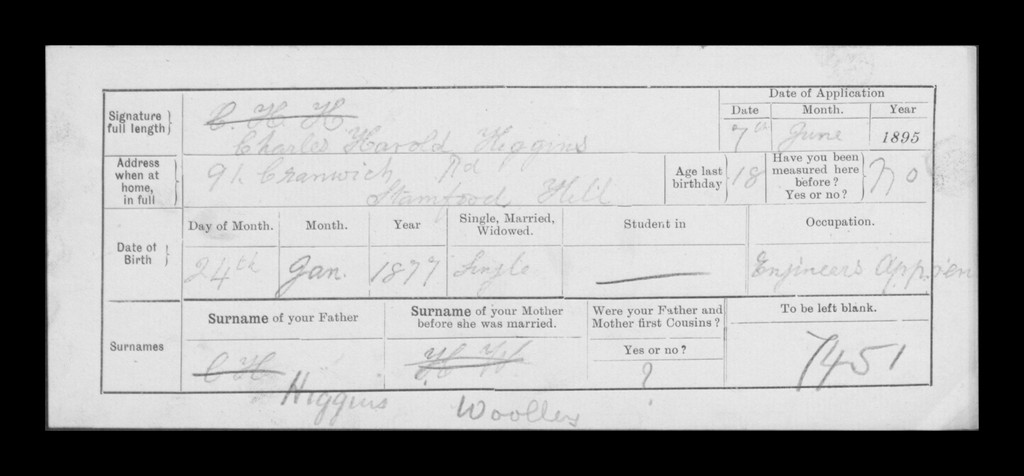 Date of Application
Signature full length
C. H. H
Date Month. Year
Charles Harold Higgins
7th June 1895
Address when at home, in full
91. Cranwich Rd
Stamford Hill
Age last birthday
18
Have you been measured here before? Yes or no?
No
Date of Birth
Day of Month. Month. Year Single, Married, Widowed. Student in Occupation.
24th Jan. 1877 Single — Engineers Appren
Surnames
Surname of your Father
Surname of your Mother before she was married.
Were your Father and Mother first Cousins?
Yes or no?
To be left blank.
C H
?
7451
Higgins Woolley